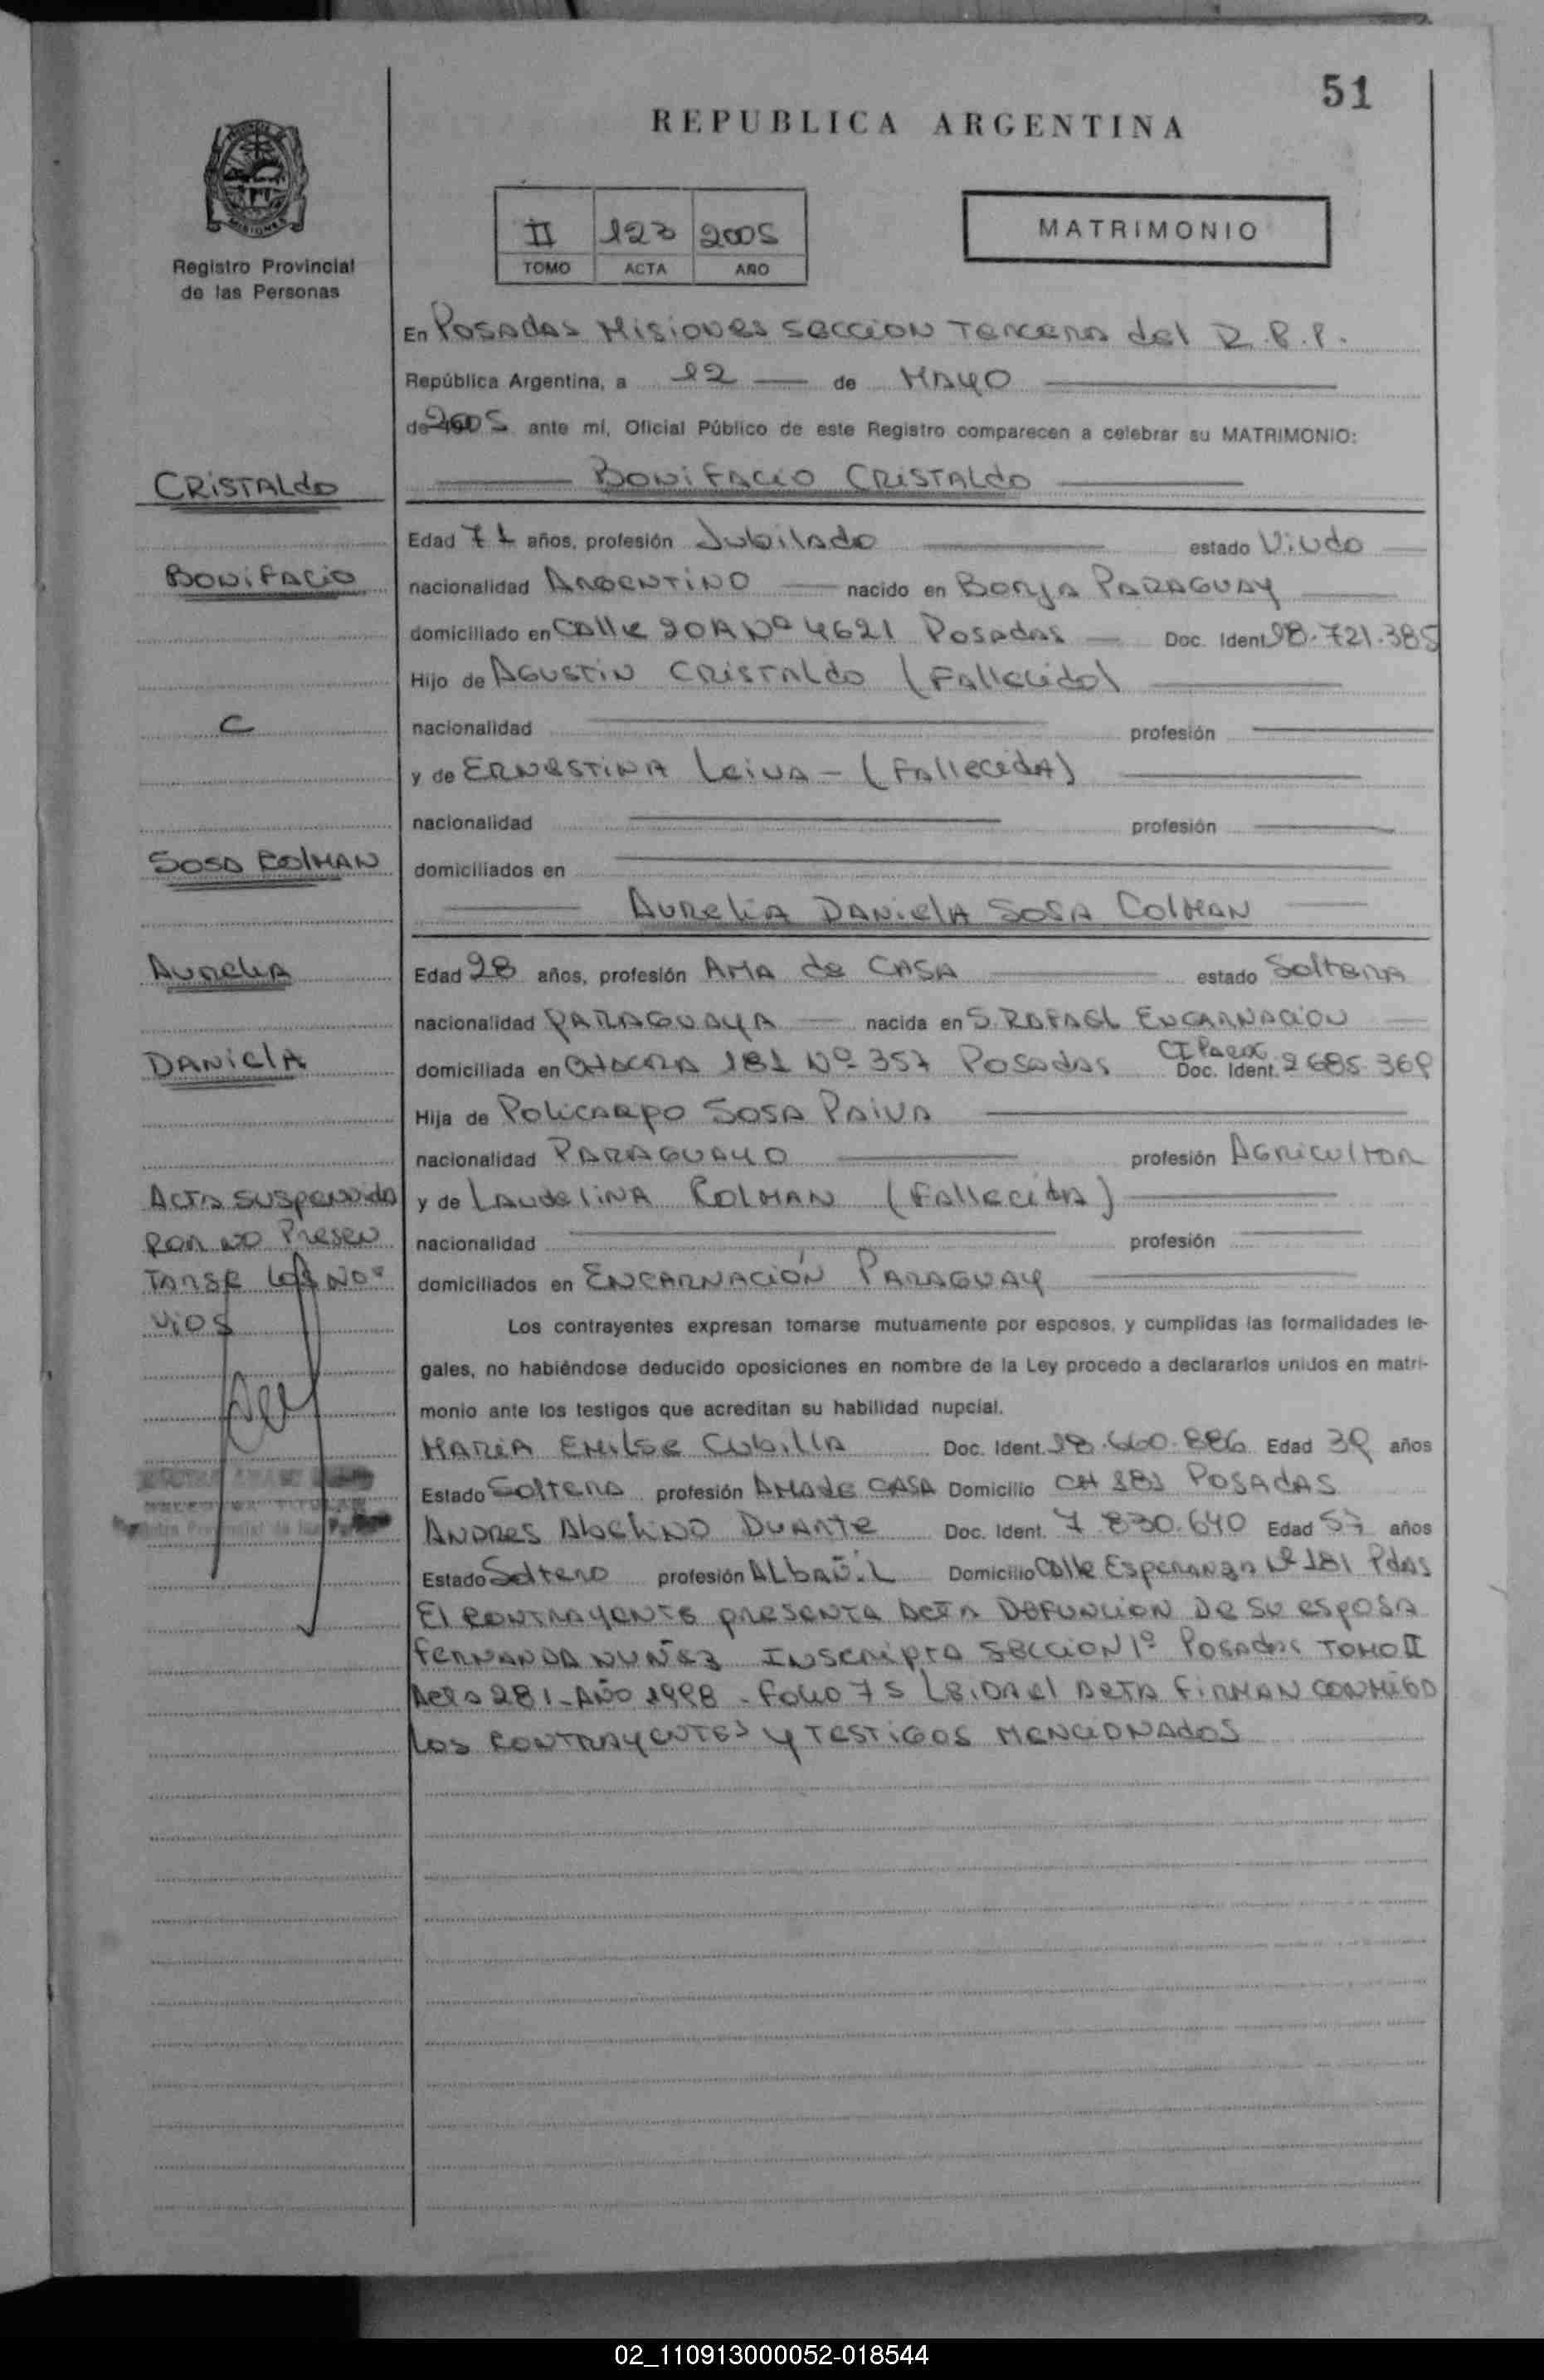 51
REPUBLICA ARGENTINA
II 123 2005
TOMO ACTA AÑO
MATRIMONIO
MISIONES
Registro Provincial
de las Personas
En Posadas Misiones seccion Tercera del R.P.P.
República Argentina, a 12 de Mayo
de 2005 ante mí, Oficial Público de este Registro comparecen a celebrar su MATRIMONIO:
CRISTALdo
Bonifacio Cristaldo
Edad 71 años, profesión Jubilado estado Viudo
Bonifacio
nacionalidad Argentino nacido en Borja Paraguay
domiciliado en Calle 20A Nº 4621 Posadas Doc. Ident. 18.721.385
Hijo de Agustin Cristaldo (Fallecido)
C
nacionalidad profesión
y de Ernestina Leiva - (Fallecida)
nacionalidad profesión
Sosa Colman
domiciliados en
Aurelia Daniela Sosa Colman
Aurelia
Edad 28 años, profesión Ama de Casa estado Soltera
nacionalidad Paraguaya nacida en S. Rafael Encarnacion
Daniela
domiciliada en Chacra 181 Nº 357 Posadas CI Parag. Doc. Ident. 2685.369
Hija de Policarpo Sosa Paiva
nacionalidad Paraguayo profesión Agricultor
Acta suspendida
y de Laudelina Colman (Fallecida)
por no Presen
nacionalidad profesión
tarse los No-
domiciliados en Encarnación Paraguay
vios
Los contrayentes expresan tomarse mutuamente por esposos, y cumplidas las formalidades le-
gales, no habiéndose deducido oposiciones en nombre de la Ley procedo a declararlos unidos en matri-
monio ante los testigos que acreditan su habilidad nupcial.
Maria Emilse Cubilla Doc. Ident. 18.660.886 Edad 39 años
Estado Soltera profesión Ama de Casa Domicilio CH 181 Posadas
Andres Abelino Duarte Doc. Ident. 7.830.640 Edad 57 años
Estado Soltero profesión Albañil Domicilio Calle Esperanza Nº 181 Pdas
El contrayente presenta acta Defuncion de su esposa
Fernanda Nuñez Inscripta Seccion 1º Posadas Tomo II
Acta 281 - Año 1998 - Folio 75 Leida el acta firman conmigo
los contrayentes y testigos mencionados
02_110913000052-018544